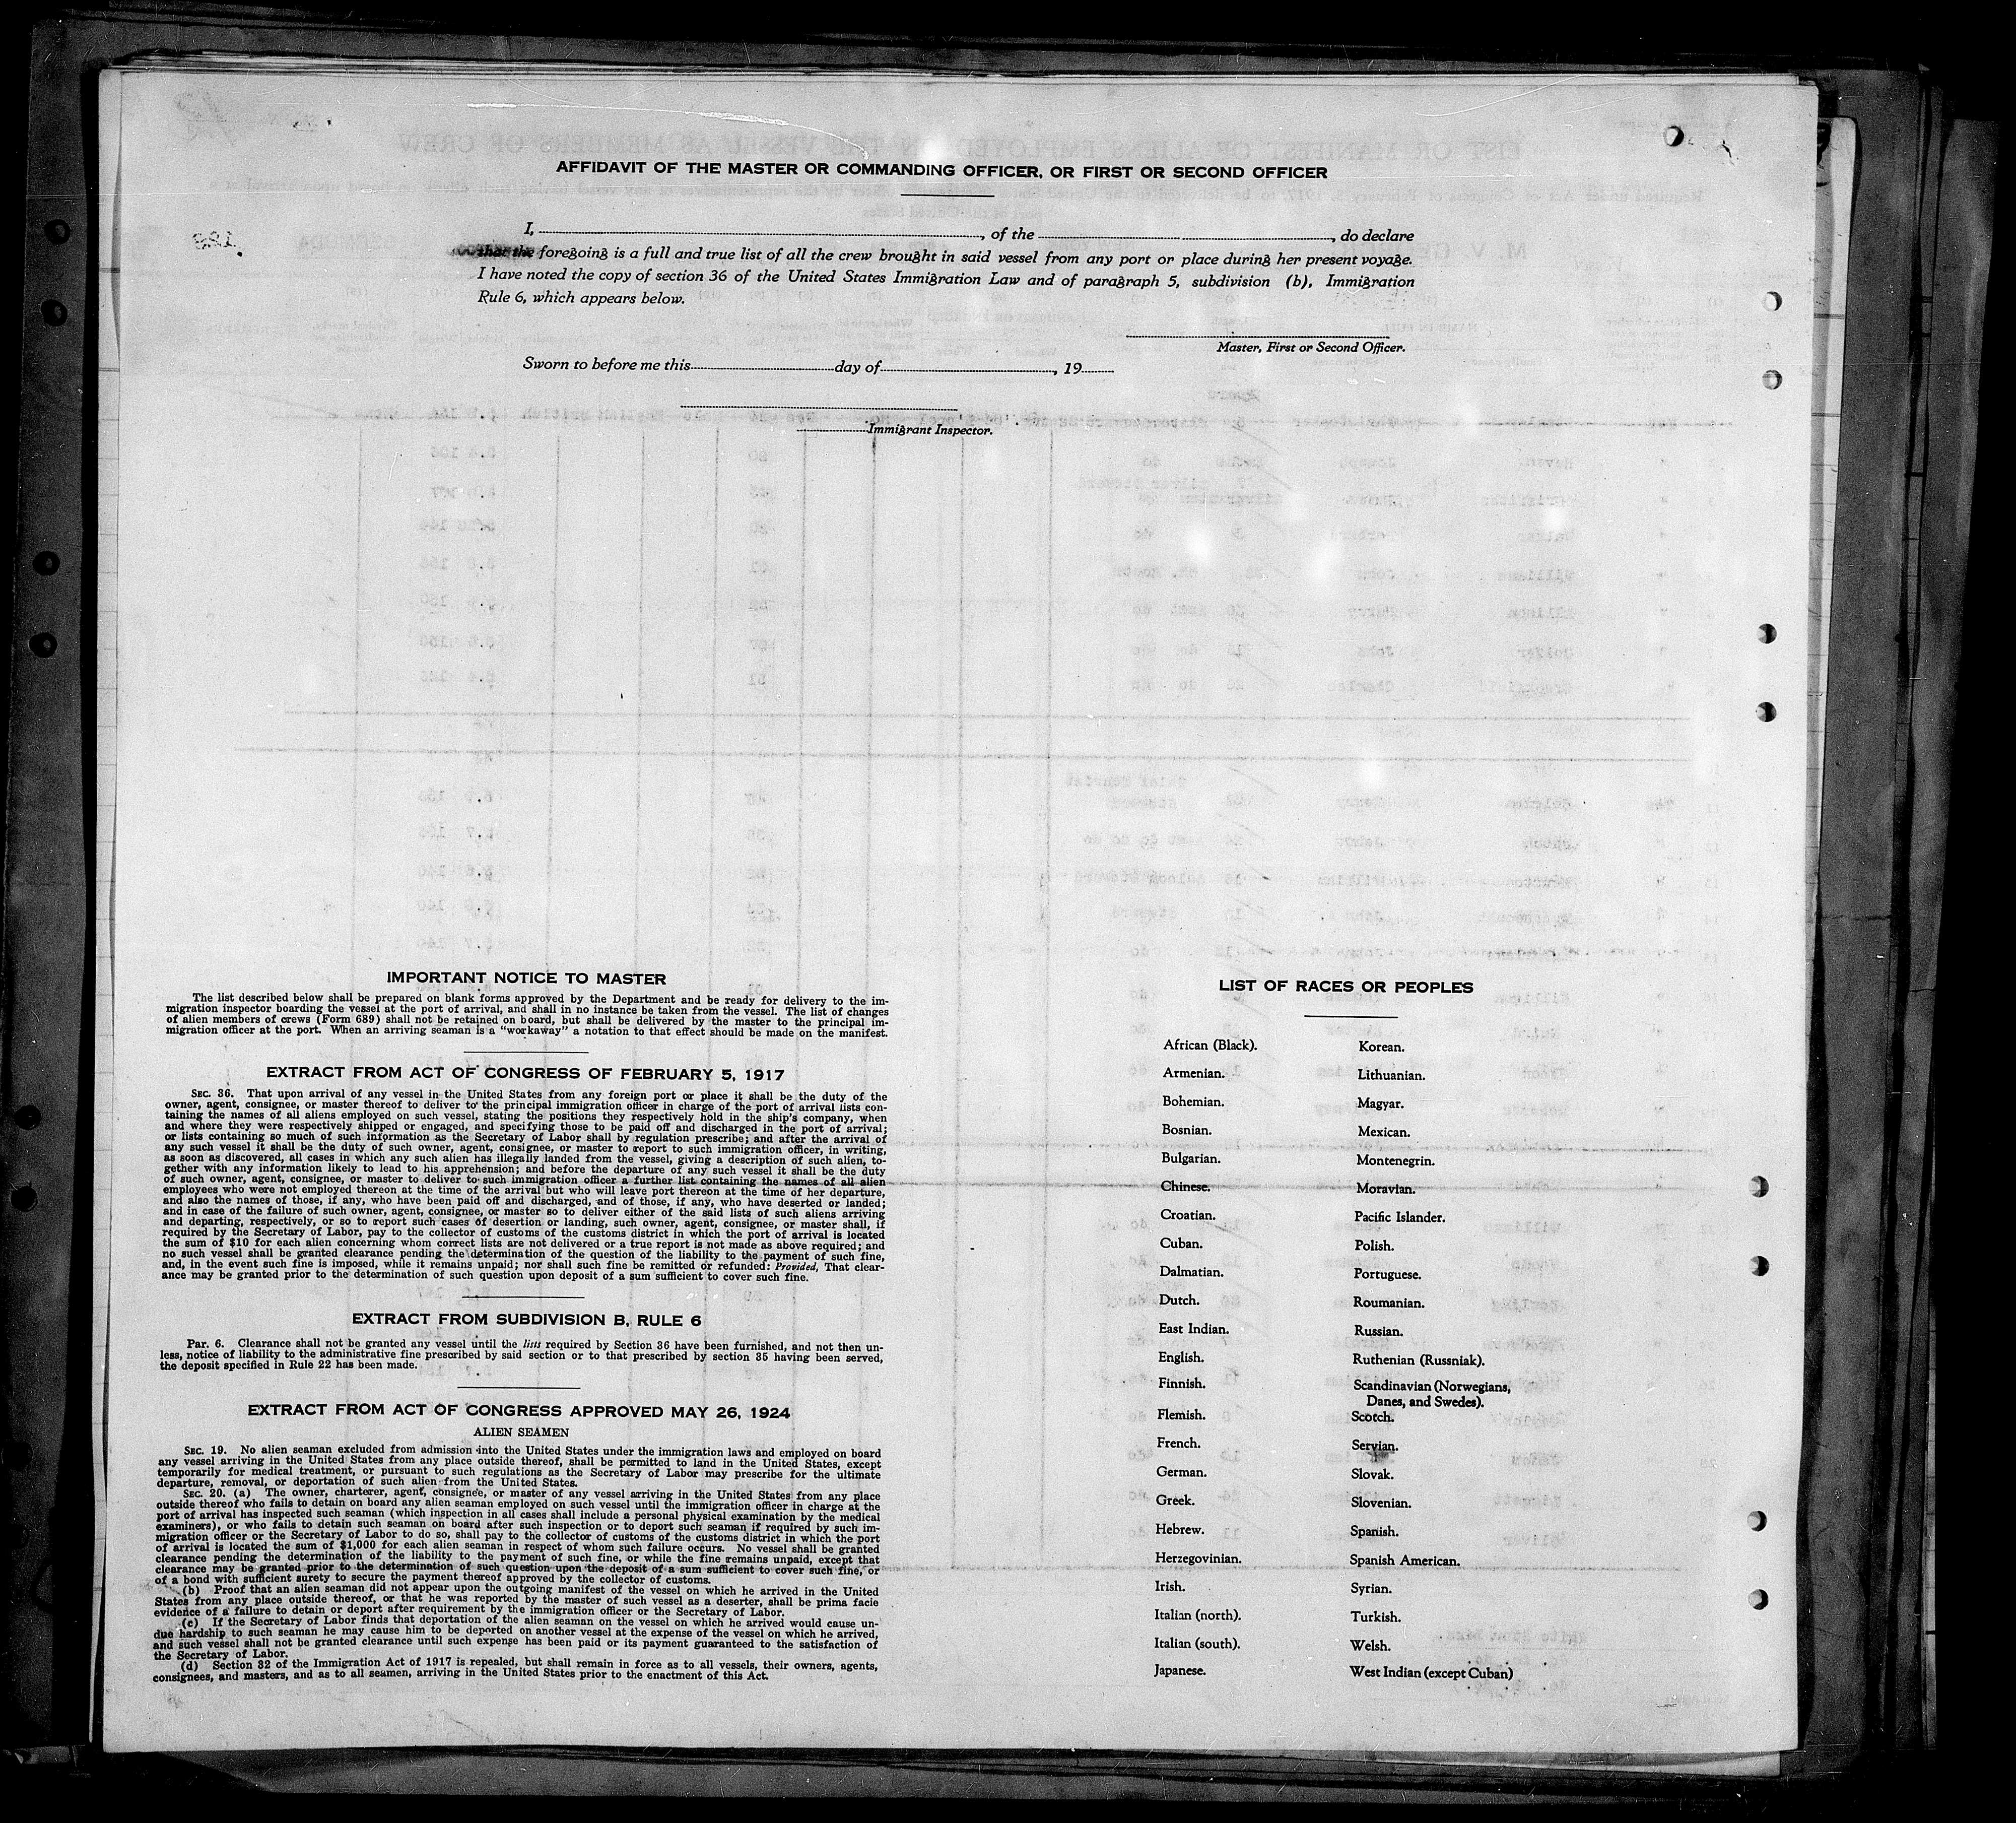 AFFIDAVIT OF THE MASTER OR COMMANDING OFFICER, OR FIRST OR SECOND OFFICER
I, ............, of the ............, do declare
that the foregoing is a full and true list of all the crew brought in said vessel from any port or place during her present voyage.
I have noted the copy of section 36 of the United States Immigration Law and of paragraph 5, subdivision (b), Immigration
Rule 6, which appears below.
Master, First or Second Officer.
Sworn to before me this............day of............, 19......
Immigrant Inspector.
IMPORTANT NOTICE TO MASTER
The list described below shall be prepared on blank forms approved by the Department and be ready for delivery to the im-
migration inspector boarding the vessel at the port of arrival, and shall in no instance be taken from the vessel. The list of changes
of alien members of crews (Form 689) shall not be retained on board, but shall be delivered by the master to the principal im-
migration officer at the port. When an arriving seaman is a "workaway" a notation to that effect should be made on the manifest.
EXTRACT FROM ACT OF CONGRESS OF FEBRUARY 5, 1917
SEC. 36. That upon arrival of any vessel in the United States from any foreign port or place it shall be the duty of the
owner, agent, consignee, or master thereof to deliver to the principal immigration officer in charge of the port of arrival lists con-
taining the names of all aliens employed on such vessel, stating the positions they respectively hold in the ship's company, when
and where they were respectively shipped or engaged, and specifying those to be paid off and discharged in the port of arrival;
or lists containing so much of such information as the Secretary of Labor shall by regulation prescribe; and after the arrival of
any such vessel it shall be the duty of such owner, agent, consignee, or master to report to such immigration officer, in writing,
as soon as discovered, all cases in which any such alien has illegally landed from the vessel, giving a description of such alien, to-
gether with any information likely to lead to his apprehension; and before the departure of any such vessel it shall be the duty
of such owner, agent, consignee, or master to deliver to such immigration officer a further list containing the names of all alien
employees who were not employed thereon at the time of the arrival but who will leave port thereon at the time of her departure,
and also the names of those, if any, who have been paid off and discharged, and of those, if any, who have deserted or landed;
and in case of the failure of such owner, agent, consignee, or master so to deliver either of the said lists of such aliens arriving
and departing, respectively, or so to report such cases of desertion or landing, such owner, agent, consignee, or master shall, if
required by the Secretary of Labor, pay to the collector of customs of the customs district in which the port of arrival is located
the sum of $10 for each alien concerning whom correct lists are not delivered or a true report is not made as above required; and
no such vessel shall be granted clearance pending the determination of the question of the liability to the payment of such fine,
and, in the event such fine is imposed, while it remains unpaid; nor shall such fine be remitted or refunded: Provided, That clear-
ance may be granted prior to the determination of such question upon deposit of a sum sufficient to cover such fine.
EXTRACT FROM SUBDIVISION B, RULE 6
Par. 6. Clearance shall not be granted any vessel until the lists required by Section 36 have been furnished, and not then un-
less, notice of liability to the administrative fine prescribed by said section or to that prescribed by section 35 having been served,
the deposit specified in Rule 22 has been made.
EXTRACT FROM ACT OF CONGRESS APPROVED MAY 26, 1924
ALIEN SEAMEN
SEC. 19. No alien seaman excluded from admission into the United States under the immigration laws and employed on board
any vessel arriving in the United States from any place outside thereof, shall be permitted to land in the United States, except
temporarily for medical treatment, or pursuant to such regulations as the Secretary of Labor may prescribe for the ultimate
departure, removal, or deportation of such alien from the United States.
SEC. 20. (a) The owner, charterer, agent, consignee, or master of any vessel arriving in the United States from any place
outside thereof who fails to detain on board any alien seaman employed on such vessel until the immigration officer in charge at the
port of arrival has inspected such seaman (which inspection in all cases shall include a personal physical examination by the medical
examiners), or who fails to detain such seaman on board after such inspection or to deport such seaman if required by such im-
migration officer or the Secretary of Labor to do so, shall pay to the collector of customs of the customs district in which the port
of arrival is located the sum of $1,000 for each alien seaman in respect of whom such failure occurs. No vessel shall be granted
clearance pending the determination of the liability to the payment of such fine, or while the fine remains unpaid, except that
clearance may be granted prior to the determination of such question upon the deposit of a sum sufficient to cover such fine, or
of a bond with sufficient surety to secure the payment thereof approved by the collector of customs.
(b) Proof that an alien seaman did not appear upon the outgoing manifest of the vessel on which he arrived in the United
States from any place outside thereof, or that he was reported by the master of such vessel as a deserter, shall be prima facie
evidence of a failure to detain or deport after requirement by the immigration officer or the Secretary of Labor.
(c) If the Secretary of Labor finds that deportation of the alien seaman on the vessel on which he arrived would cause un-
due hardship to such seaman he may cause him to be deported on another vessel at the expense of the vessel on which he arrived,
and such vessel shall not be granted clearance until such expense has been paid or its payment guaranteed to the satisfaction of
the Secretary of Labor.
(d) Section 32 of the Immigration Act of 1917 is repealed, but shall remain in force as to all vessels, their owners, agents,
consignees, and masters, and as to all seamen, arriving in the United States prior to the enactment of this Act.
LIST OF RACES OR PEOPLES
African (Black).
Armenian.
Bohemian.
Bosnian.
Bulgarian.
Chinese.
Croatian.
Cuban.
Dalmatian.
Dutch.
East Indian.
English.
Finnish.
Flemish.
French.
German.
Greek.
Hebrew.
Herzegovinian.
Irish.
Italian (north).
Italian (south).
Japanese.
Korean.
Lithuanian.
Magyar.
Mexican.
Montenegrin.
Moravian.
Pacific Islander.
Polish.
Portuguese.
Roumanian.
Russian.
Ruthenian (Russniak).
Scandinavian (Norwegians,
Danes, and Swedes).
Scotch.
Servian.
Slovak.
Slovenian.
Spanish.
Spanish American.
Syrian.
Turkish.
Welsh.
West Indian (except Cuban)